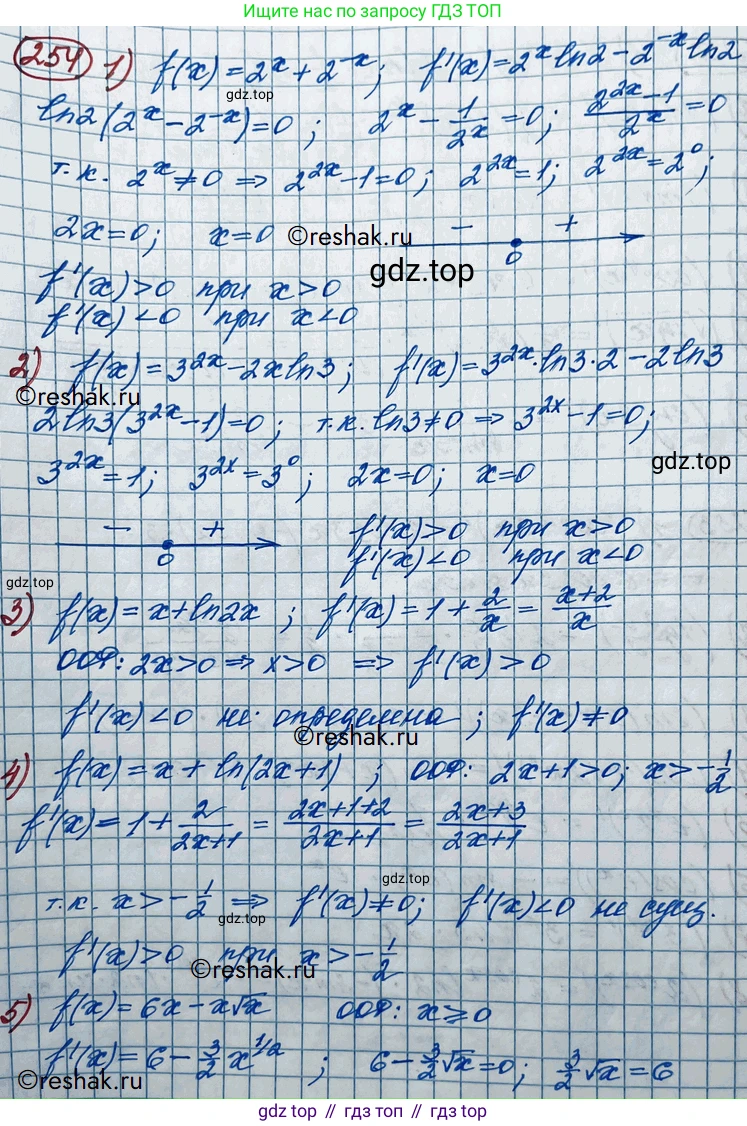 Ищите нас на сайте ГДЗ ТОП
254 1) f(x)=2^x+2^-x; f'(x)=2^x ln2-2^-x ln2
gdz.top
ln2(2^x-2^-x)=0; 2^x-1/2^x=0; (2^2x-1)/2^x=0
т.к. 2^x≠0 ⇒ 2^2x-1=0; 2^2x=1; 2^2x=2^0;
2x=0; x=0 ©reshak.ru - + 0
gdz.top
f'(x)>0 при x>0
f'(x)<0 при x<0
2) f(x)=3^2x-2xln3; f'(x)=3^2x·ln3·2-2ln3
©reshak.ru
2ln3(3^2x-1)=0; т.к. ln3≠0 ⇒ 3^2x-1=0;
gdz.top
3^2x=1; 3^2x=3^0; 2x=0; x=0
- + 0 f'(x)>0 при x>0
f'(x)<0 при x<0
gdz.top
3) f(x)=x+ln2x; f'(x)=1+2/x=(x+2)/x
ООФ: 2x>0 ⇒ x>0 ⇒ f'(x)>0
f'(x)<0 не определена; f'(x)≠0
©reshak.ru
4) f(x)=x+ln(2x+1); ООФ: 2x+1>0; x>-1/2
f'(x)=1+2/(2x+1)=(2x+1+2)/(2x+1)=(2x+3)/(2x+1)
gdz.top
т.к. x>-1/2 ⇒ f'(x)≠0; f'(x)<0 не сущ.
f'(x)>0 при x>-1/2
©reshak.ru
5) f(x)=6x-x√x ООФ: x⩾0
f'(x)=6-3/2x^1/2; 6-3/2√x=0; 3/2√x=6
©reshak.ru
gdz.top // гдз.топ // гдз.top